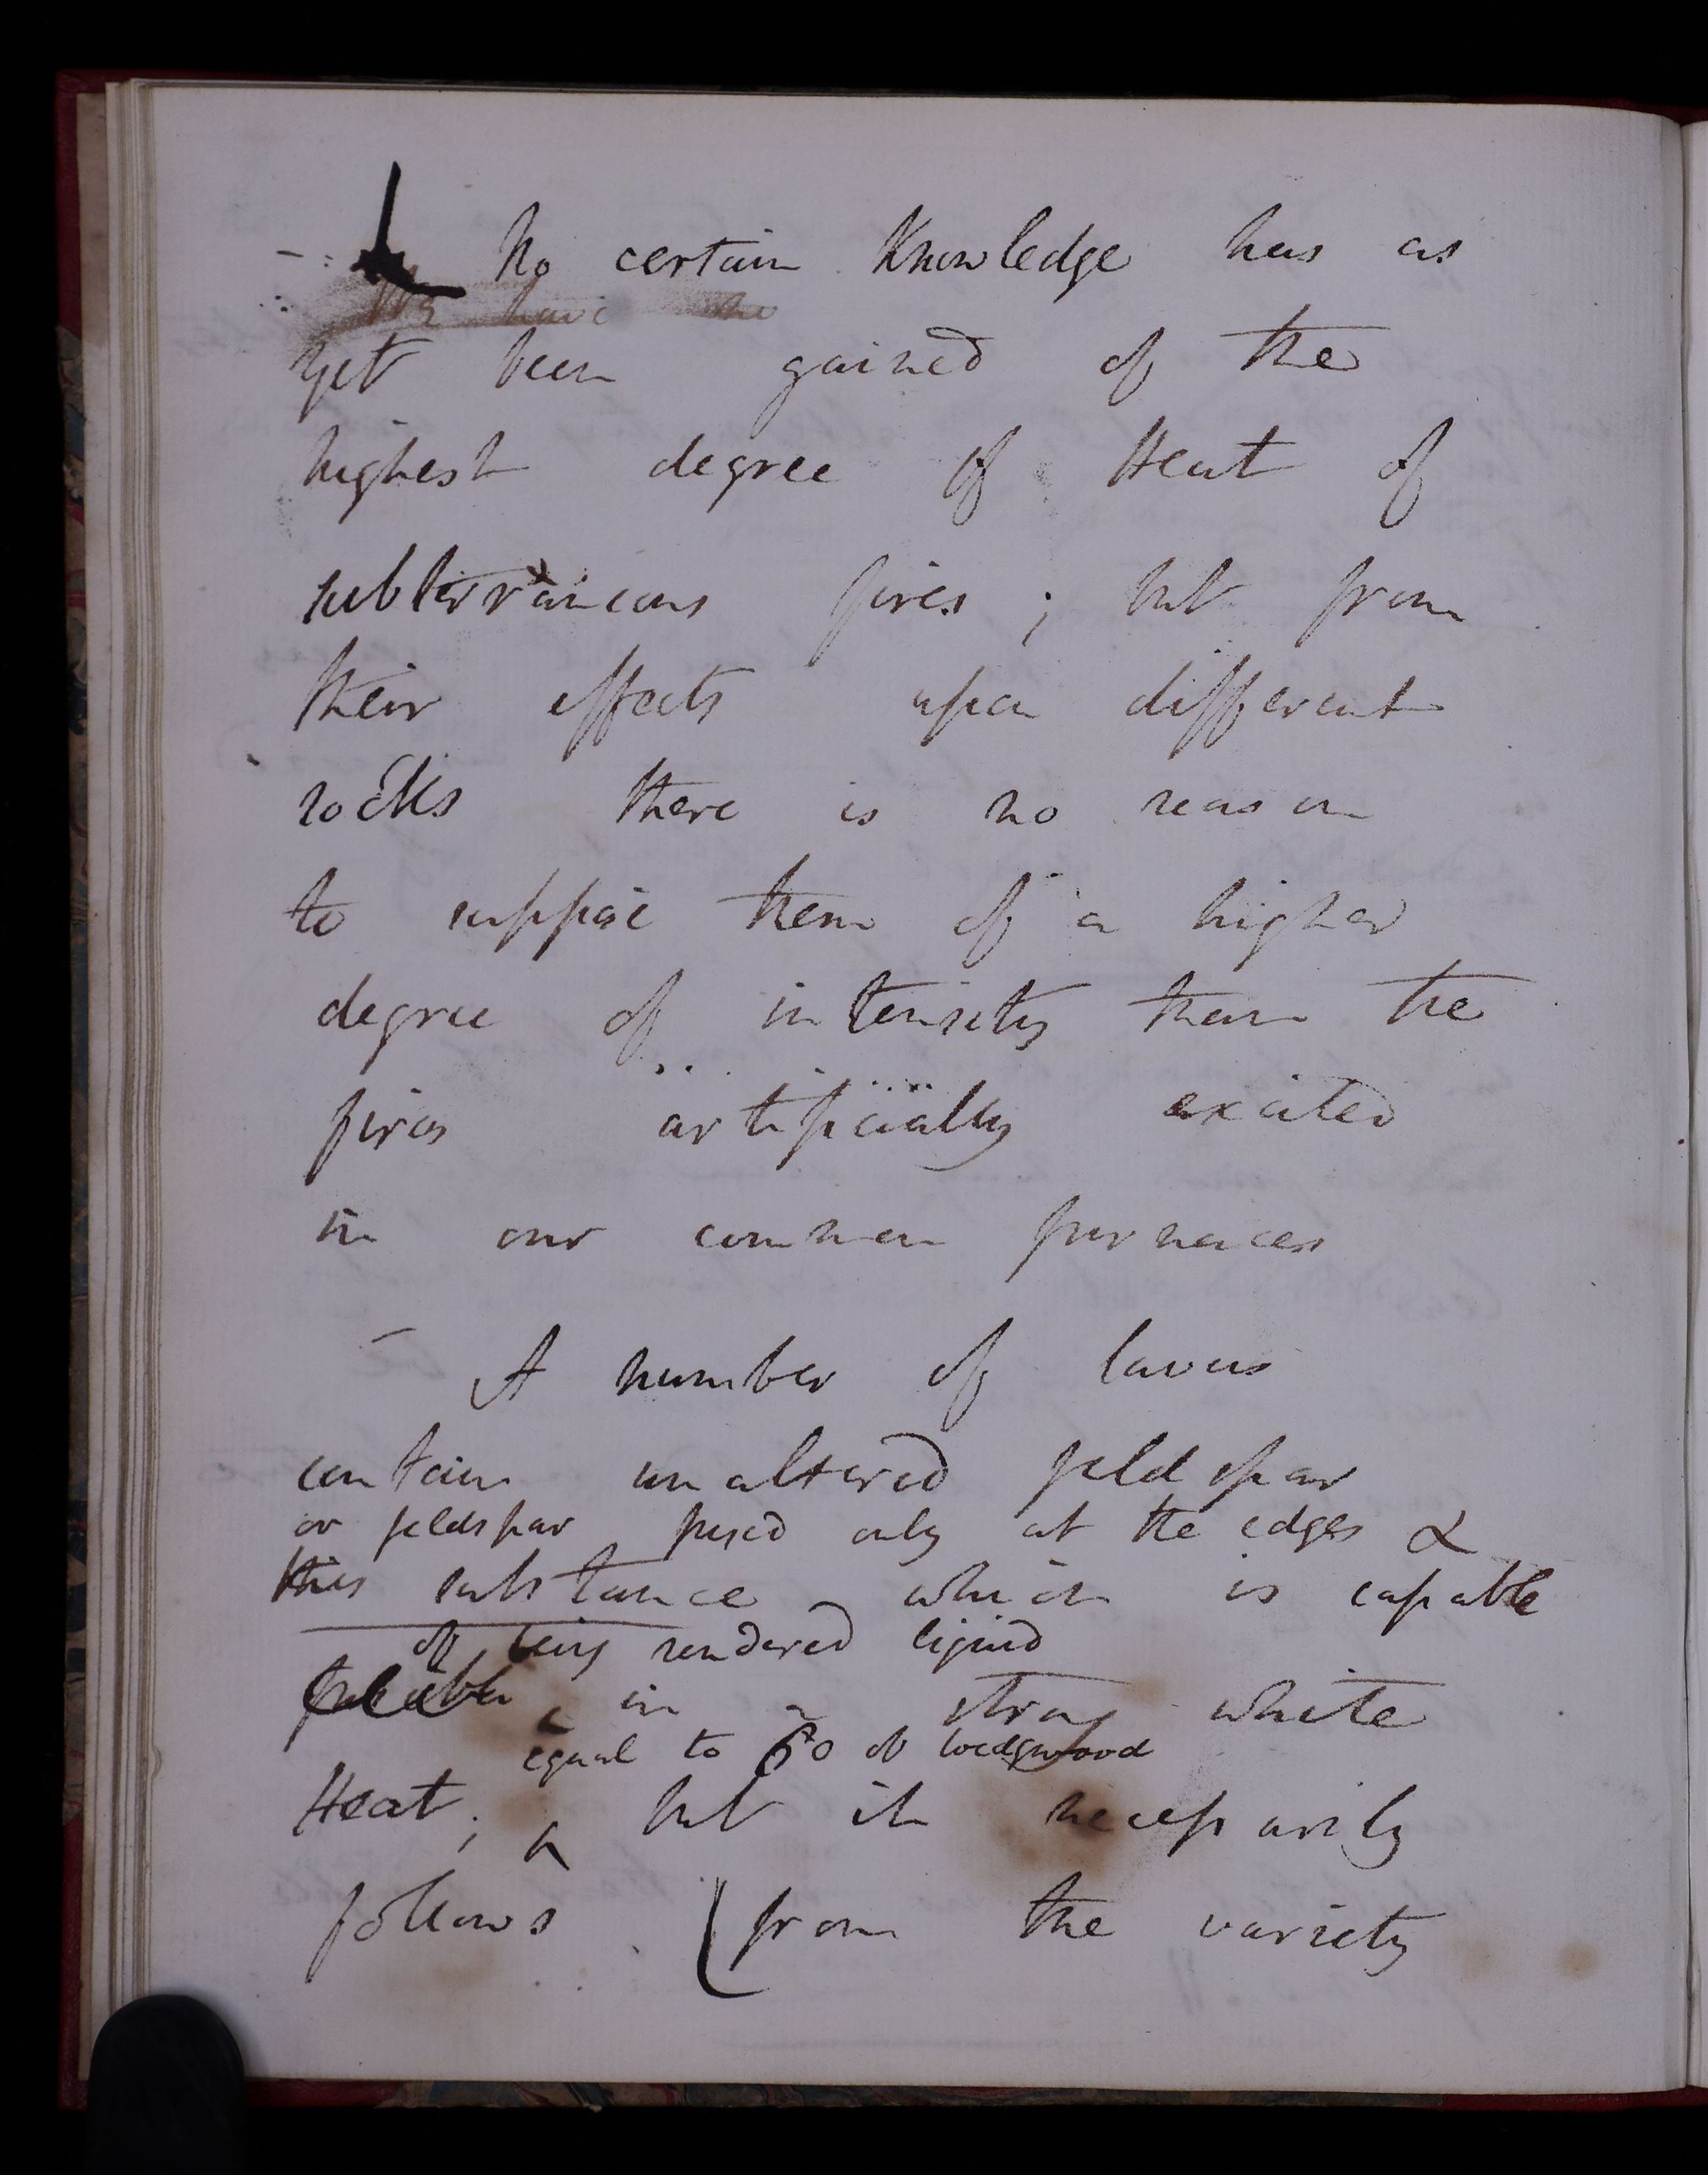 - No certain Knowledge has as
We have no
yet been gained of the
highest degree of Heat of
subterraneous fires ; but from
their effects upon different
rocks there is no reason
to suppose them of a higher
degree of intensity than the
fires artificially excited
in our common furnaces
- A number of lavas
contain unaltered feldspar
or feldspar fused only at the edges &
this substance which is capable
of being rendered liquid
in a strong white
equal to 60 of Wedgwood
Heat ; but it necessarily
follows (from the variety